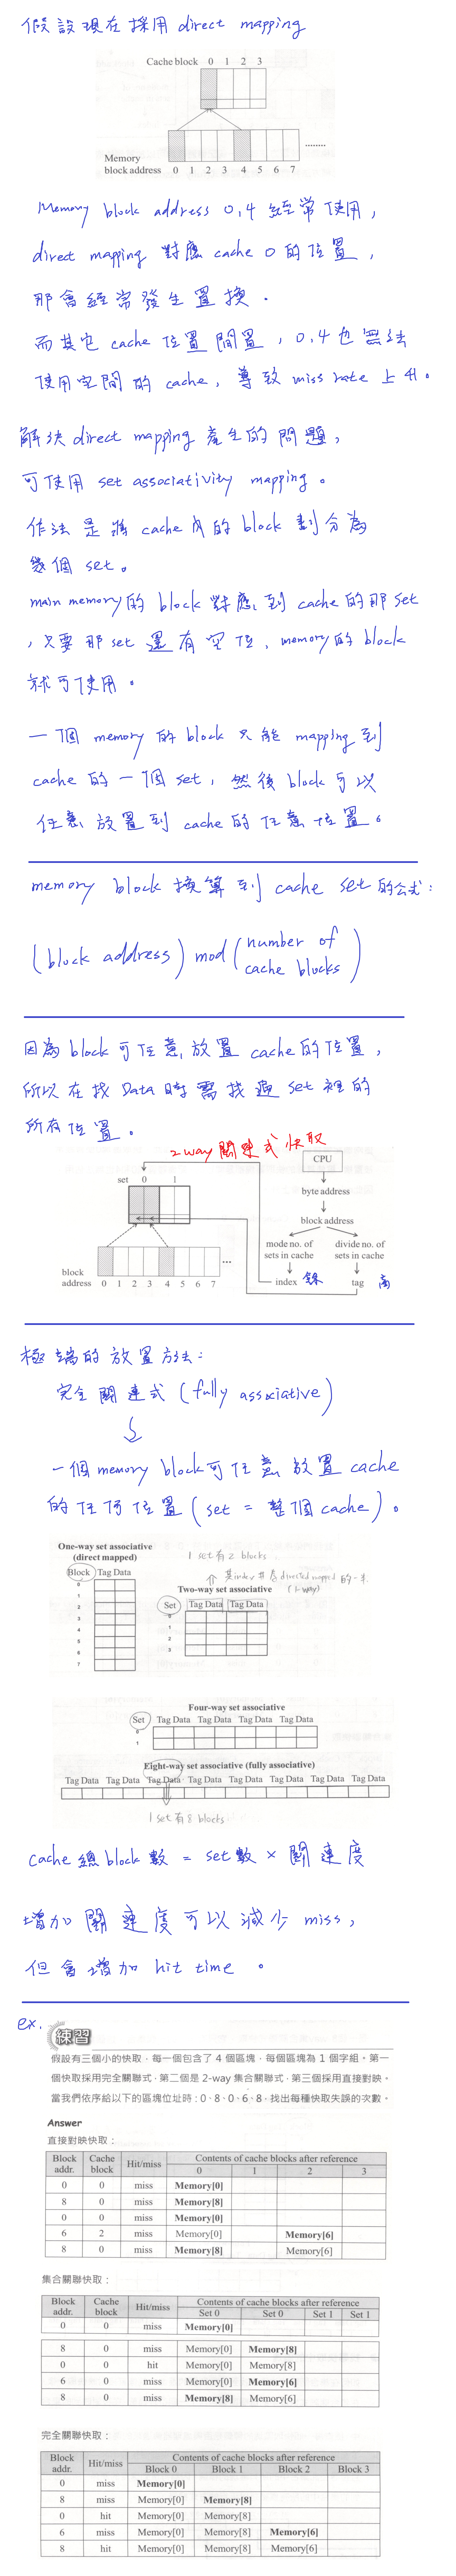 假設現在採用 direct mapping
Cache block 0 1 2 3
Memory
block address 0 1 2 3 4 5 6 7
Memory block address 0,4 經常使用,
direct mapping 對應 cache 0 的位置,
那會經常發生置換.
而其它 cache 位置閒置, 0,4也無法
使用空閒的cache, 導致 miss rate 上升。
解決 direct mapping 產生的問題,
可使用 set associativity mapping。
作法是將 cache 內的 block 劃分為
幾個 set。
main memory的 block 對應到 cache的那 set
,只要那 set 還有空位, memory的 block
就可使用。
一個 memory 的 block 只能 mapping 到
cache 的一個 set, 然後 block 可以
任意放置到 cache的任意位置。
memory block 換算到 cache set的公式:
(block address) mod (number of
cache blocks)
因為block可任意放置 cache的位置,
所以在找 Data 時需找遍 set 裡的
所有位置。
2way 關連式快取
set 0 1
CPU
byte address
block address
mode no. of
sets in cache
divide no. of
sets in cache
block
address 0 1 2 3 4 5 6 7 ...
index
tag 高
極端的放置方法:
完全關連式 (fully associative)
一個 memory block可任意放置 cache
的任何位置 (set = 整個 cache)。
One-way set associative
(direct mapped)
Block Tag Data
0
1
2
3
4
5
6
7
1 set 有 2 blocks.
Two-way set associative
(1-way)
Set Tag Data Tag Data
0
1
2
3
Four-way set associative
Set Tag Data Tag Data Tag Data Tag Data
0
1
Eight-way set associative (fully associative)
Tag Data Tag Data Tag Data Tag Data Tag Data Tag Data Tag Data Tag Data
1 set 有 8 blocks.
cache 總 block 數 = set 數 × 關連度
增加關連度可以減少 miss,
但會增加 hit time 。
ex.
練習
假設有三個小的快取,每一個包含了 4 個區塊,每個區塊為 1 個字組。第一
個快取採用完全關聯式,第二個是 2-way 集合關聯式,第三個採用直接對映。
當我們依序給以下的區塊位址時:0、8、0、6、8,找出每種快取失誤的次數。
Answer
直接對映快取:
Block addr. Cache block Hit/miss Contents of cache blocks after reference
0 1 2 3
0 0 miss Memory[0]
8 0 miss Memory[8]
0 0 miss Memory[0]
6 2 miss Memory[0] Memory[6]
8 0 miss Memory[8] Memory[6]
集合關聯快取:
Block addr. Cache block Hit/miss Contents of cache blocks after reference
Set 0 Set 0 Set 1 Set 1
0 0 miss Memory[0]
8 0 miss Memory[0] Memory[8]
0 0 hit Memory[0] Memory[8]
6 0 miss Memory[0] Memory[6]
8 0 miss Memory[8] Memory[6]
完全關聯快取:
Block addr. Hit/miss Contents of cache blocks after reference
Block 0 Block 1 Block 2 Block 3
0 miss Memory[0]
8 miss Memory[0] Memory[8]
0 hit Memory[0] Memory[8]
6 miss Memory[0] Memory[8] Memory[6]
8 hit Memory[0] Memory[8] Memory[6]